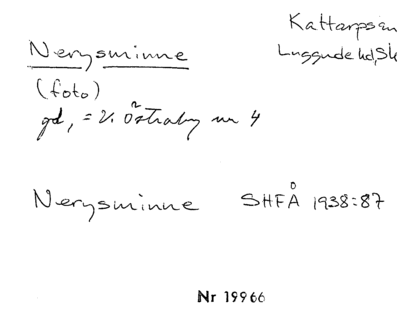 Kattarps sn
Luggude hd, Sk
Nerysminne
(foto)
gd, = V. Östraby nr 4
Nerysminne SHFÅ 1938:87
Nr 19966